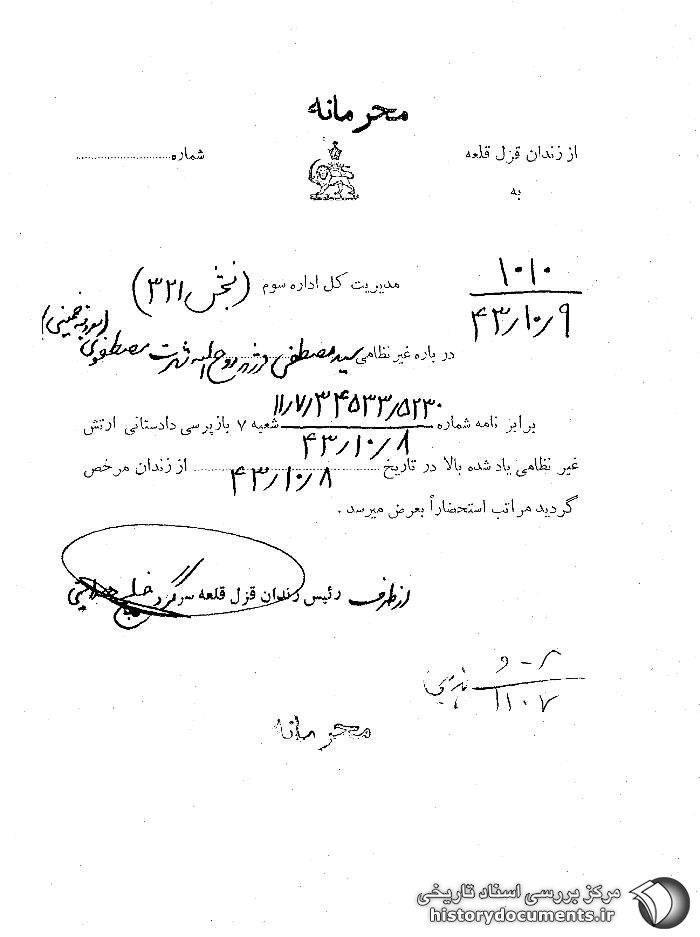 محرمانه
از زندان قزل قلعه
شماره
به
۱۰۱۰
۴۳/۱۰/۹
مدیریت کل اداره سوم (بخش ۳۲۱)
در باره غیر نظامی سید مصطفی فرزند روح اله شهرت مصطفوی (معروف به خمینی)
برابر نامه شماره ۱۱/۷/۳۴۵۳۳/۵۲۳۰ شعبه ۷ بازپرسی دادستانی ارتش
۴۳/۱۰/۸
غیر نظامی یاد شده بالا در تاریخ ۴۳/۱۰/۸ از زندان مرخص
گردید مراتب استحضاراً بعرض میرسد.
از طرف رئیس زندان قزل قلعه سرگرد
محرمانه
مرکز بررسی اسناد تاریخی
historydocuments.ir